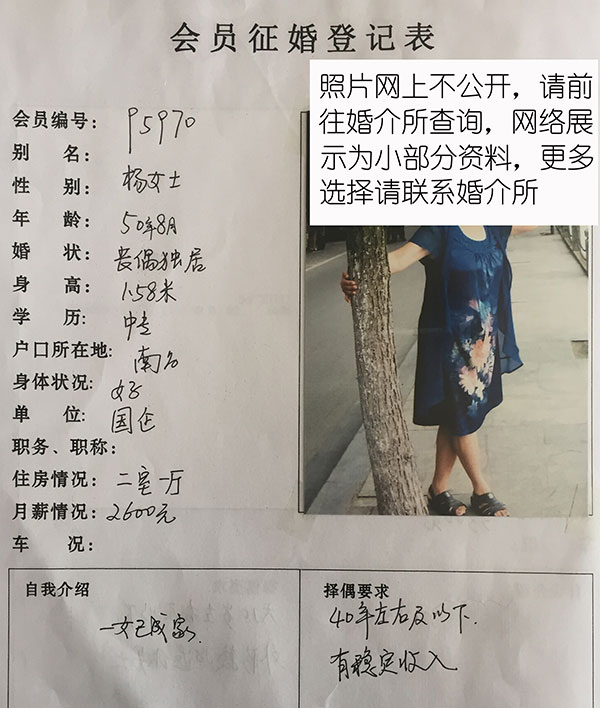 会员征婚登记表
照片网上不公开，请前
往婚介所查询，网络展
示为小部分资料，更多
选择请联系婚介所
会员编号： P5970
别 名：
性 别： 杨女士
年 龄： 50年8月
婚 状： 丧偶独居
身 高： 1.58米
学 历： 中专
户口所在地：
身体状况： 好
单 位： 国企
职务、职称：
住房情况： 二室一厅
月薪情况： 2600元
车 况：
自我介绍
一女已成家.
择偶要求
40年左右及以下.
有稳定收入